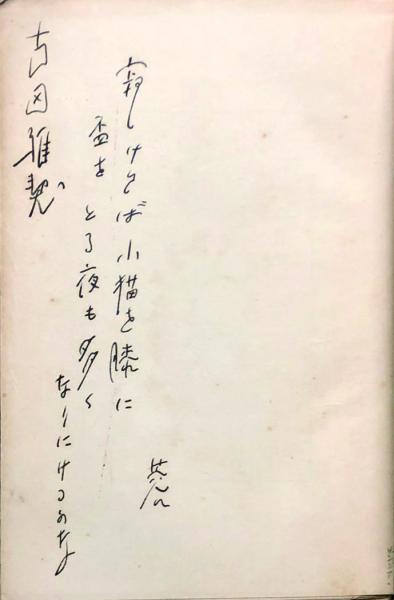 寂しければ小猫を膝に
盃をとる夜も多く
なりにけるかな
雅契